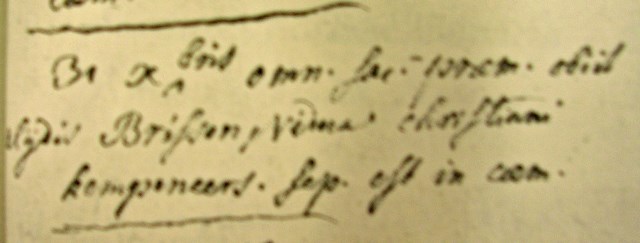 31 xbris omn. sac. præm. obiit
Elijdis Brissen, vidua christiani
kempeneers. sep. est in cœm.